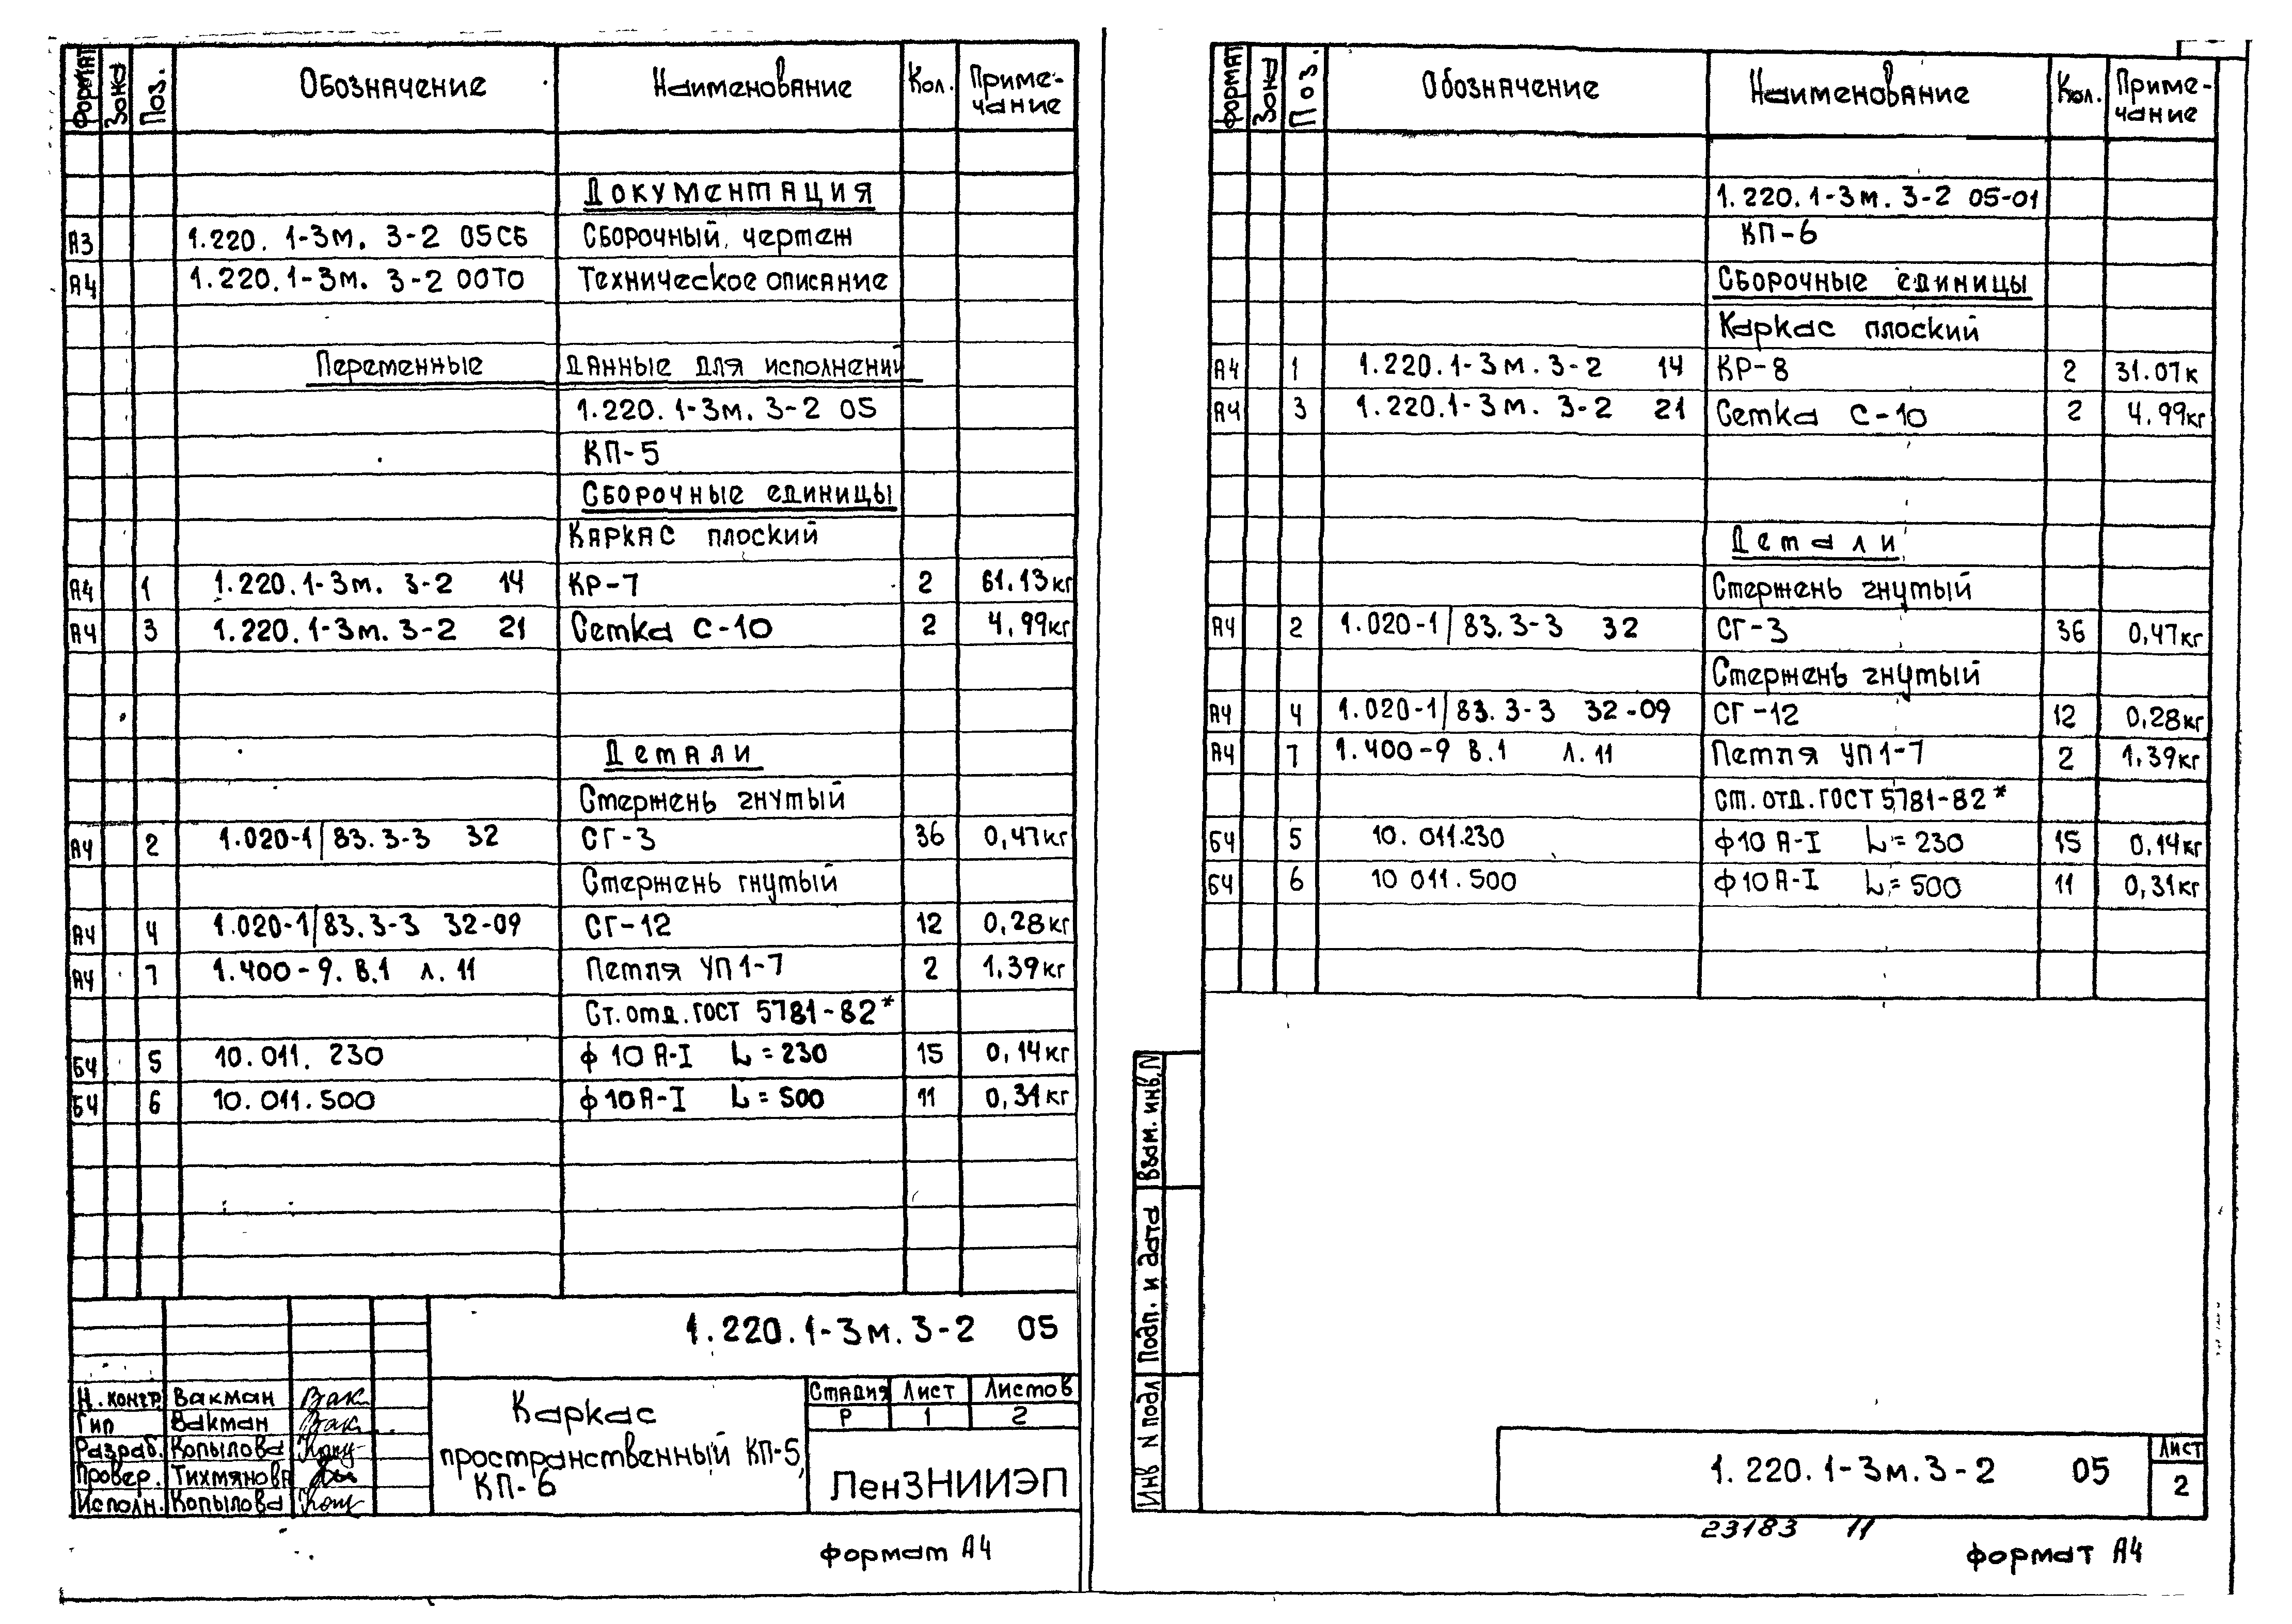 Формат Зона Поз. Обозначение Наименование Кол. Приме-
чание
Документация
А3 1.220.1-3м. 3-2 05СБ Сборочный чертеж
А4 1.220.1-3м. 3-2 00ТО Техническое описание
Переменные данные для исполнений
1.220.1-3м. 3-2 05
КП-5
Сборочные единицы
Каркас плоский
А4 1 1.220.1-3м. 3-2 14 КР-7 2 61.13кг
А4 3 1.220.1-3м. 3-2 21 Сетка С-10 2 4,99кг
Детали
Стержень гнутый
А4 2 1.020-1/83.3-3 32 СГ-3 36 0,47кг
Стержень гнутый
А4 4 1.020-1/83.3-3 32-09 СГ-12 12 0,28кг
А4 7 1.400-9. В.1 л.11 Петля УП1-7 2 1,39кг
Ст.отд.ГОСТ 5781-82*
БЧ 5 10.011.230 ф10А-I L=230 15 0,14кг
БЧ 6 10.011.500 ф10А-I L=500 11 0,31кг
1.220.1-3м.3-2 05
Н.контр. Вакман
Гип Вакман
Разраб. Копылова
Провер. Тихмянова
Исполн. Копылова
Каркас
пространственный КП-5,
КП-6
Стадия Лист Листов
Р 1 2
ЛенЗНИИЭП
Формат А4
Формат Зона Поз. Обозначение Наименование Кол. Приме-
чание
1.220.1-3м.3-2 05-01
КП-6
Сборочные единицы
Каркас плоский
А4 1 1.220.1-3м.3-2 14 КР-8 2 31.07к
А4 3 1.220.1-3м.3-2 21 Сетка С-10 2 4.99кг
Детали
Стержень гнутый
А4 2 1.020-1/83.3-3 32 СГ-3 36 0,47кг
Стержень гнутый
А4 4 1.020-1/83.3-3 32-09 СГ-12 12 0,28кг
А4 7 1.400-9 В.1 л.11 Петля УП1-7 2 1,39кг
Ст.отд.ГОСТ 5781-82*
БЧ 5 10.011.230 ф10А-I L=230 15 0,14кг
БЧ 6 10 011.500 ф10А-I L=500 11 0,31кг
Взам.инв.N
Подп. и дата
Инв N подл
1.220.1-3м.3-2 05
Лист
2
23183 11
Формат А4